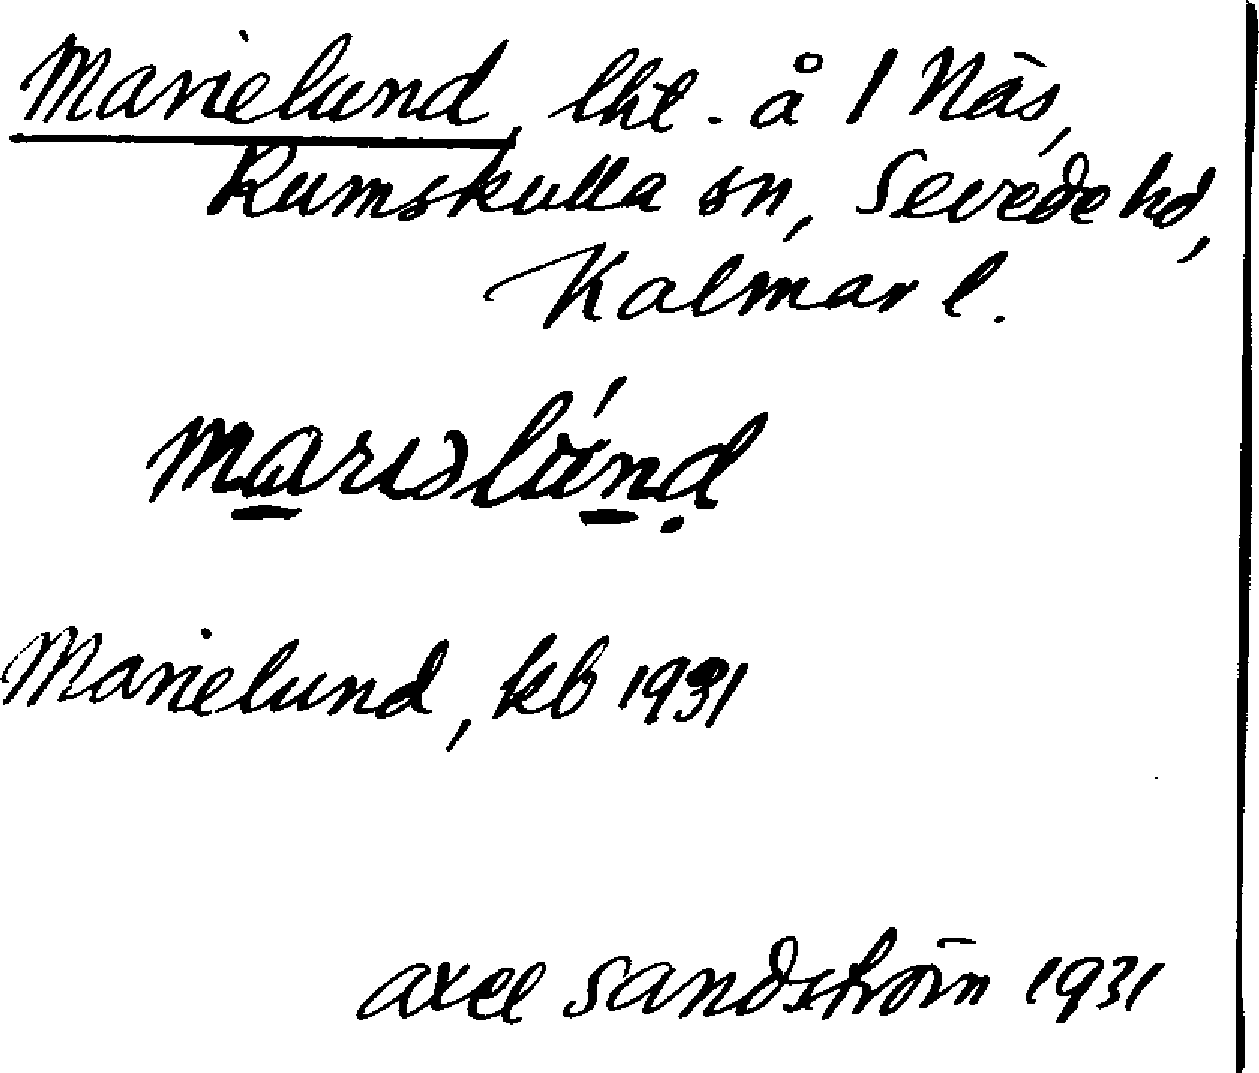 Marielund, lht. å 1 Näs,
Rumskulla sn, Sevede hd,
Kalmar l.
marɩəlúnd
Marielund, kb 1931
Axel Sandström 1931